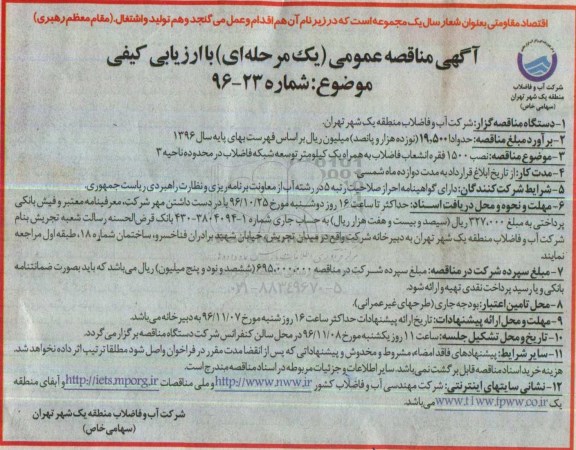 اقتصاد مقاومتی بعنوان شعار سال یک مجموعه است که در زیر نام آن هم اقدام و عمل می گنجد و هم تولید و اشتغال. (مقام معظم رهبری)
آگهی مناقصه عمومی (یک مرحله ای) با ارزیابی کیفی
موضوع: شماره ۲۳-۹۶
شرکت آب و فاضلاب
منطقه یک شهر تهران
(سهامی خاص)
۱-دستگاه مناقصه گزار: شرکت آب و فاضلاب منطقه یک شهر تهران.
۲-برآورد مبلغ مناقصه: حدودا ۱۹,۵۰۰ (نوزده هزار و پانصد) میلیون ریال بر اساس فهرست بهای پایه سال ۱۳۹۶
۳-موضوع مناقصه: نصب ۱۵۰۰ فقره انشعاب فاضلاب به همراه یک کیلومتر توسعه شبکه فاضلاب در محدوده ناحیه ۳
۴-مدت کار: از تاریخ ابلاغ قرارداد به مدت دوازده ماه شمسی
۵-شرایط شرکت کنندگان: دارای گواهینامه احراز صلاحیت رتبه ۵ در رشته آب از معاونت برنامه ریزی و نظارت راهبردی ریاست جمهوری.
۶-مهلت و نحوه و محل دریافت اسناد: حداکثر تا ساعت ۱۶ روز دوشنبه مورخ ۹۶/۱۰/۲۵ با در دست داشتن مهر شرکت، معرفینامه معتبر و فیش بانکی
پرداختی به مبلغ ۳۲۷,۰۰۰ ریال (سیصد و بیست و هفت هزار ریال) به حساب جاری شماره ۱-۴۳۰-۳۸۰۴۰۹۴ بانک قرض الحسنه رسالت شعبه تجریش بنام
شرکت آب و فاضلاب منطقه یک شهر تهران به دبیرخانه شرکت واقع در میدان تجریش، خیابان شهید برادران فناخسرو، ساختمان شماره ۱۸، طبقه اول مراجعه
نمایند
۷-مبلغ سپرده شرکت در مناقصه: مبلغ سپرده شرکت در مناقصه ۶۹۵,۰۰۰,۰۰۰ (ششصد و نود و پنج میلیون) ریال می باشد که باید بصورت ضمانتنامه
بانکی و یا رسید پرداخت نقدی تهیه و ارائه شود.
۰۲۱-۸۸۳۴۹۶۷۰-۵
۸-محل تامین اعتبار: بودجه جاری (طرحهای غیر عمرانی).
۹-مهلت و محل ارائه پیشنهادات: تاریخ ارائه پیشنهادات حداکثر ساعت ۱۶ روز شنبه مورخ ۹۶/۱۱/۰۷ به دبیرخانه می باشد.
۱۰-تاریخ و محل تشکیل جلسه: ساعت ۱۱ روز یکشنبه مورخ ۹۶/۱۱/۰۸ در محل سالن کنفرانس شرکت دستگاه مناقصه برگزار می گردد.
۱۱-سایر شرایط: پیشنهادهای فاقد امضاء، مشروط و مخدوش و پیشنهاداتی که پس از انقضا مدت مقرر در فراخوان واصل شود مطلقا ترتیب اثر داده نخواهد شد.
هزینه خرید اسناد مناقصه قابل برگشت نمی باشد. سایر اطلاعات و جزئیات مربوطه در اسناد مناقصه مندرج است.
۱۲-نشانی سایتهای اینترنتی: شرکت مهندسی آب و فاضلاب کشور http://www.nww.ir و ملی مناقصات http://iets.mporg.ir و آبفای منطقه
یک www.t1ww.tpww.co.ir می باشد.
شرکت آب و فاضلاب منطقه یک شهر تهران
(سهامی خاص)